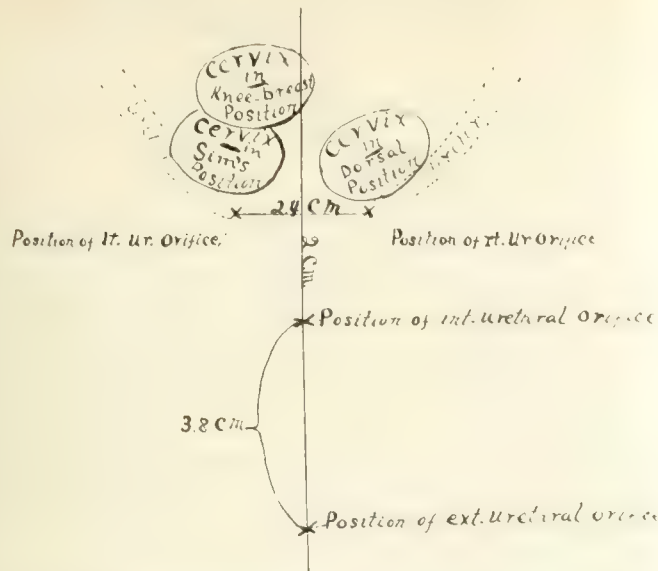 Cervix
in
Knee-breast
Position
Cervix
in
Sim's
Position
Cervix
in
Dorsal
Position
2.4 Cm
Position of lt. Ur. Orifice.
Position of rt. Ur Orifice
2 Cm.
Position of int. Urethral Orifice
3.8 Cm
Position of ext. Urethral Orifice